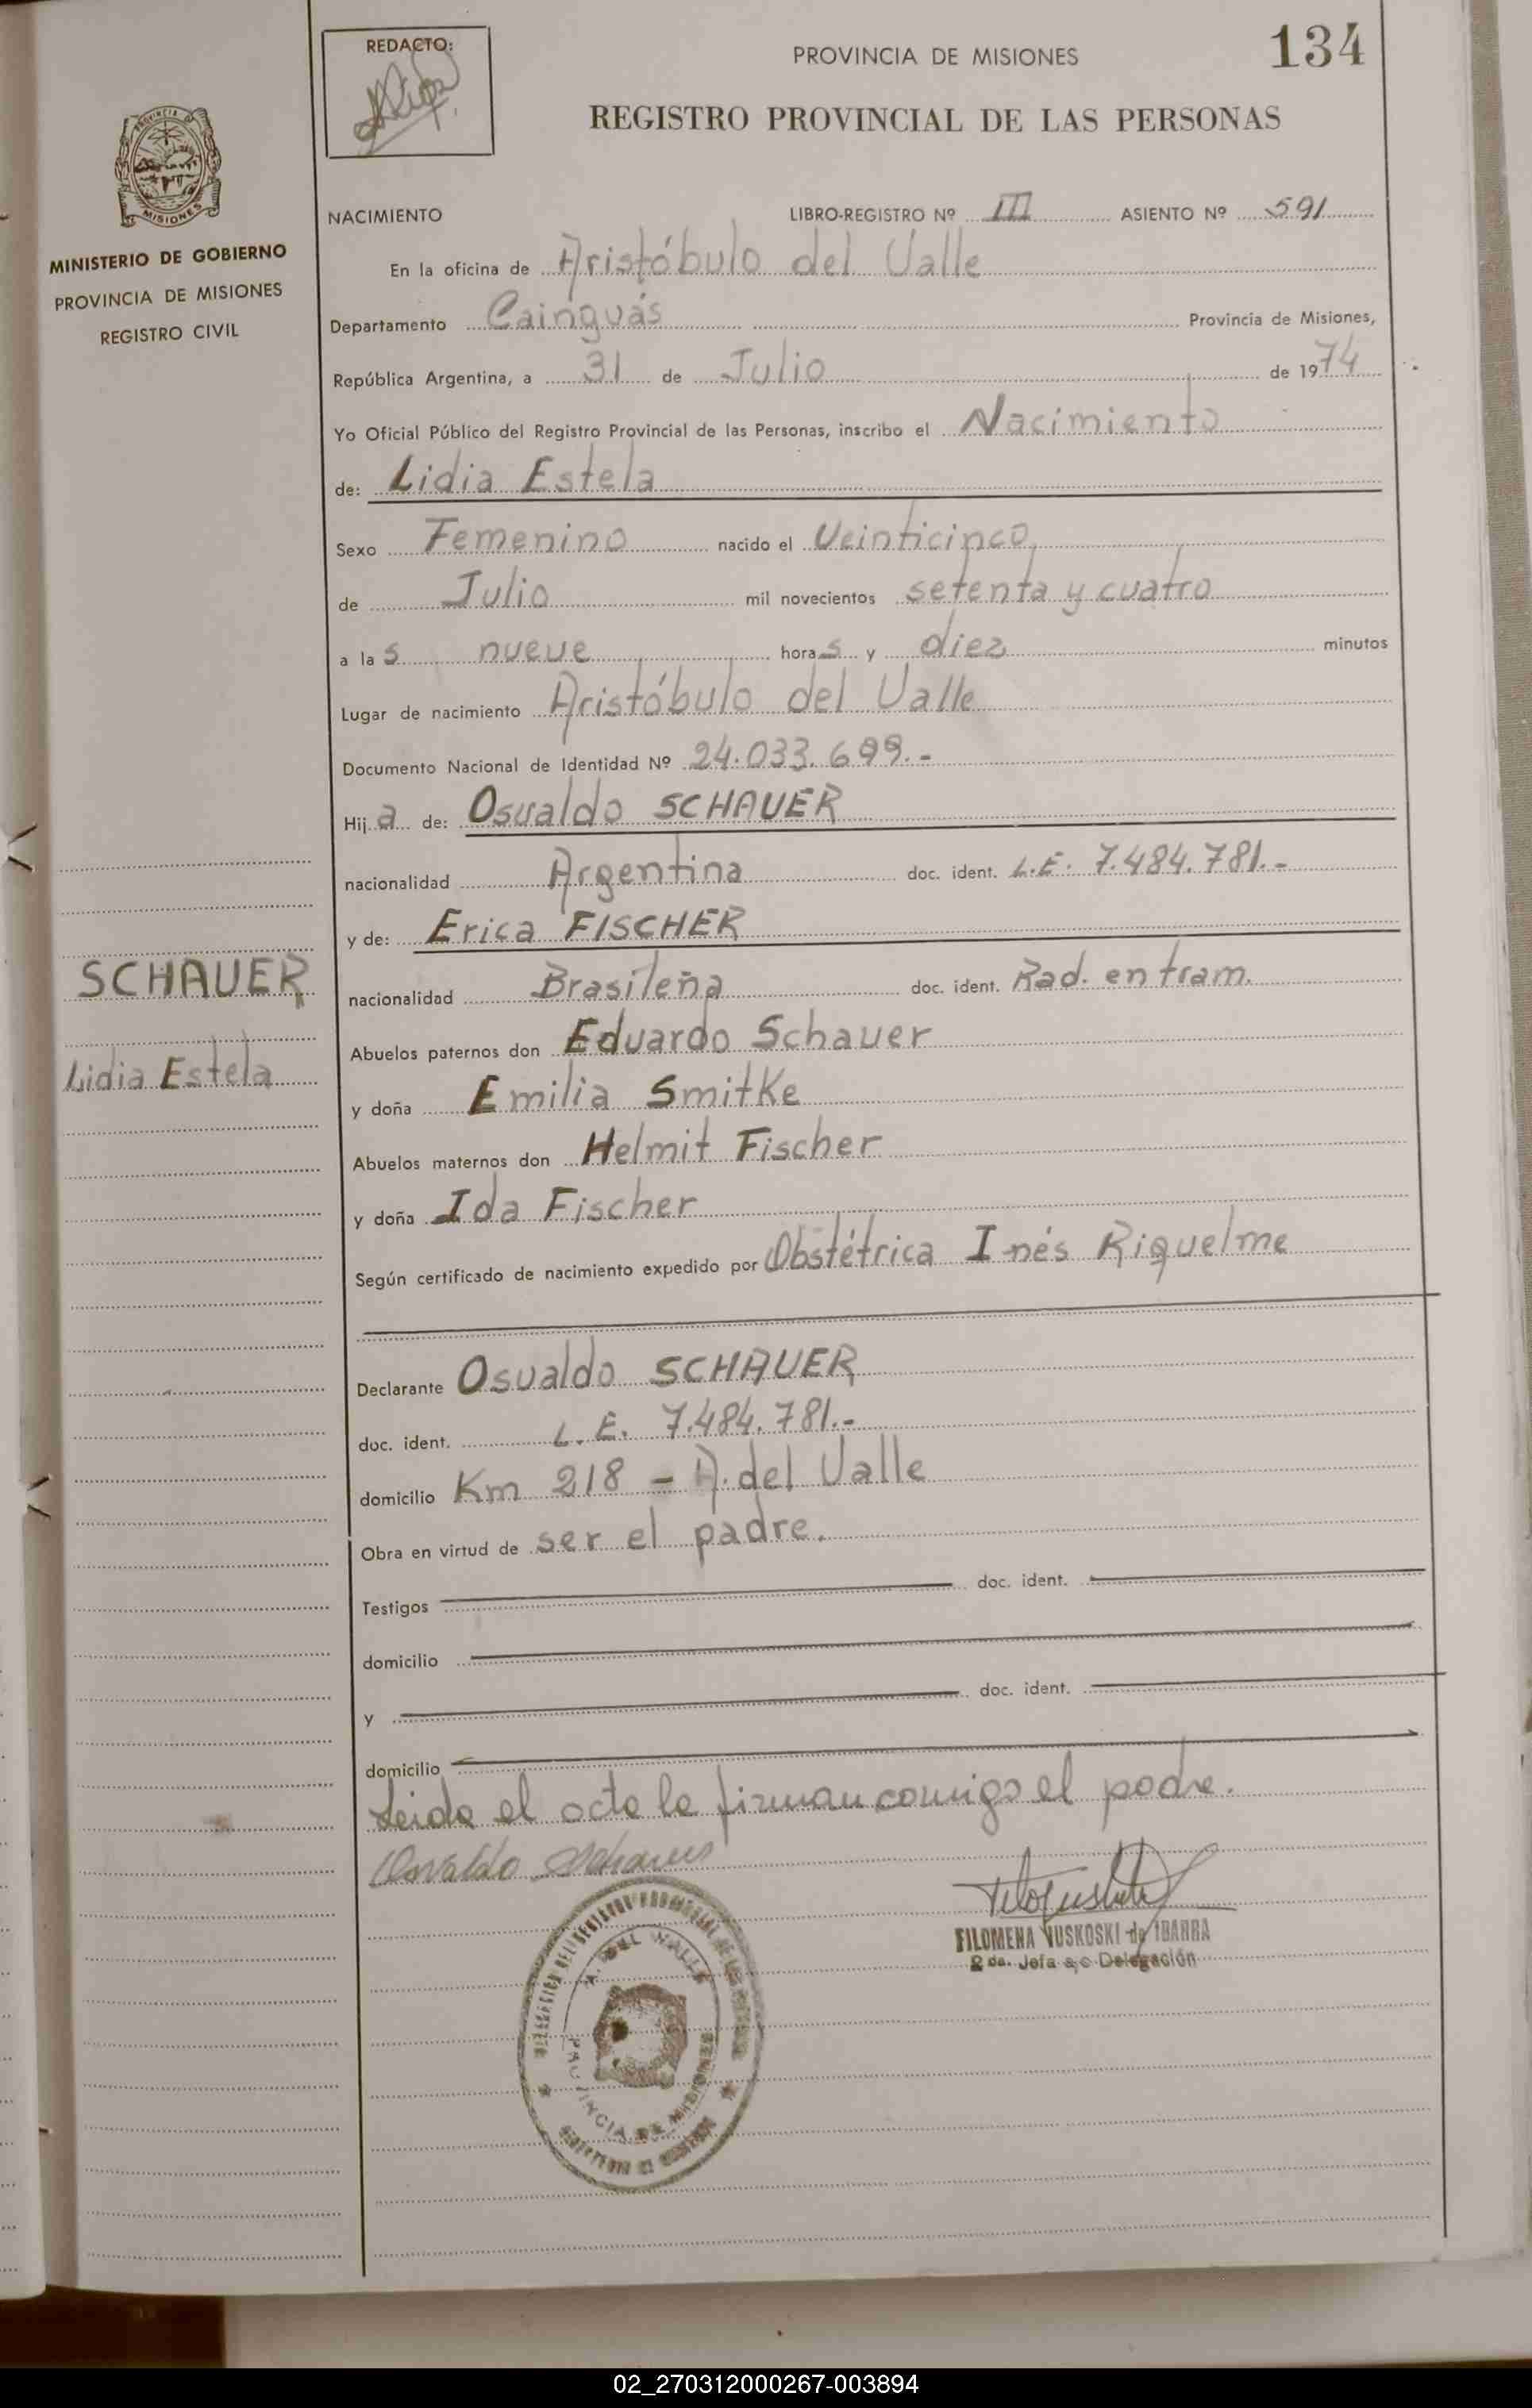 REDACTO:
PROVINCIA DE MISIONES
134
REGISTRO PROVINCIAL DE LAS PERSONAS
MISIONES
MINISTERIO DE GOBIERNO
PROVINCIA DE MISIONES
REGISTRO CIVIL
NACIMIENTO LIBRO-REGISTRO Nº III ASIENTO Nº 591
En la oficina de Aristóbulo del Valle
Departamento Cainguás Provincia de Misiones,
República Argentina, a 31 de Julio de 1974
Yo Oficial Público del Registro Provincial de las Personas, inscribo el Nacimiento
de: Lidia Estela
Sexo Femenino nacido el Veinticinco
de Julio mil novecientos setenta y cuatro
a las nueve horas y diez minutos
Lugar de nacimiento Aristóbulo del Valle
Documento Nacional de Identidad Nº 24.033.699.-
Hija de: Osvaldo SCHAUER
nacionalidad Argentina doc. ident. L.E. 7.484.781.-
y de: Erica FISCHER
SCHAUER
nacionalidad Brasileña doc. ident. Rad. en tram.
Abuelos paternos don Eduardo Schauer
Lidia Estela
y doña Emilia Smitke
Abuelos maternos don Helmit Fischer
y doña Ida Fischer
Según certificado de nacimiento expedido por Obstétrica Inés Riquelme
Declarante Osvaldo SCHAUER
doc. ident. L.E. 7.484.781.-
domicilio Km 218 - A. del Valle
Obra en virtud de ser el padre.
Testigos doc. ident.
domicilio
y doc. ident.
domicilio
Leida el acta la firman comigo el padre.
Osvaldo Schauer
FILOMENA YUSKOSKI de IBARRA
2 da. Jefa a/c Delegación
A. DEL VALLE
PROVINCIA DE MISIONES
02_270312000267-003894